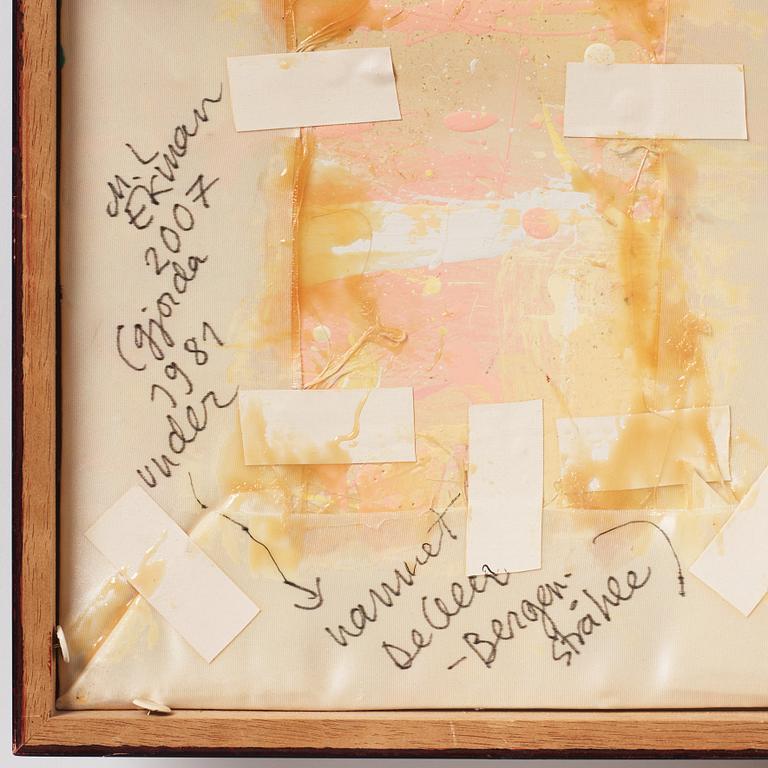 M.L
Ekman
2007
(gjorda
1981
under
namnet
De Geer
-Bergen-
stråhle)